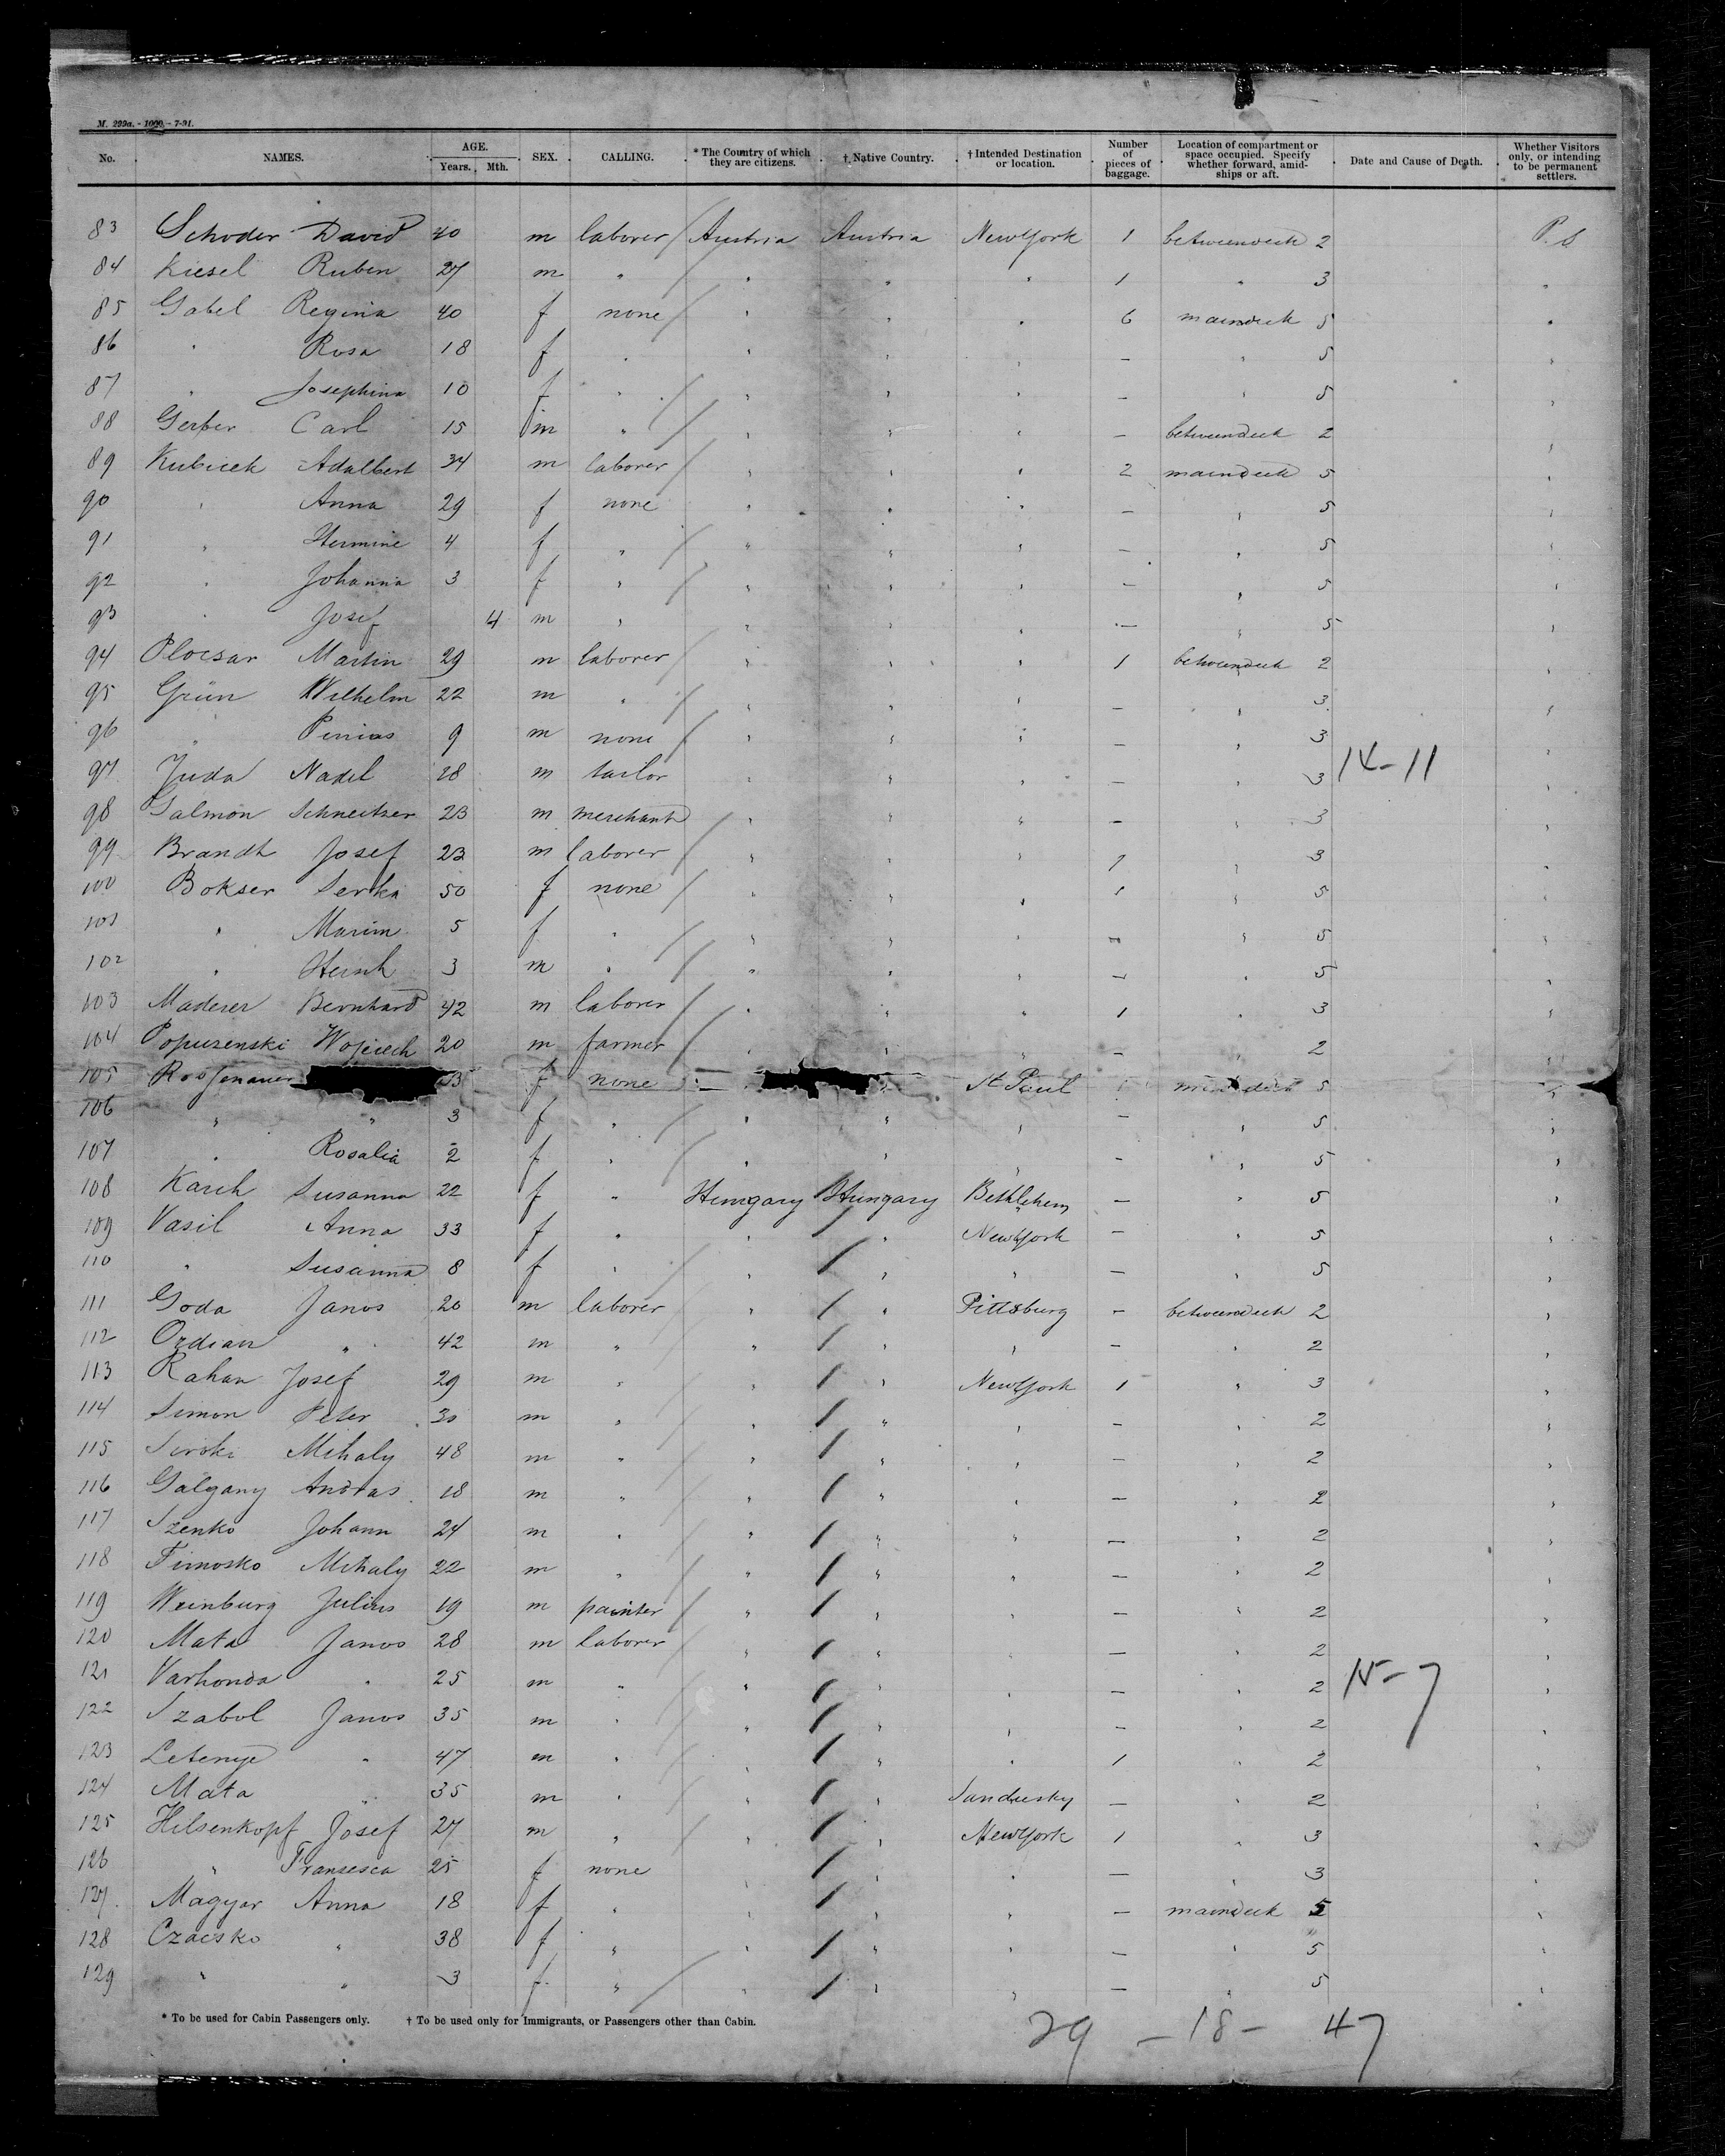 M. 299a. - 1000. - 7-91.
No. NAMES. AGE. Years. Mth. SEX. CALLING. * The Country of which they are citizens. † Native Country. † Intended Destination or location. Number of pieces of baggage. Location of compartment or space occupied. Specify whether forward, amidships or aft. Date and Cause of Death. Whether Visitors only, or intending to be permanent settlers.
83 Schoder David 40 m laborer Austria Austria New York 1 betweendeck 2 P. S
84 Kiesel Ruben 27 m " " " " 1 " 3 "
85 Gabel Regina 40 f none " " " 6 maindeck 5 "
86 " Rosa 18 f " " " " — " 5 "
87 " Josephina 10 f " " " " — " 5 "
88 Gerber Carl 15 m " " " " — betweendeck 2 "
89 Kubicek Adalbert 34 m laborer " " " 2 maindeck 5 "
90 " Anna 29 f none " " " — " 5 "
91 " Hermine 4 f " " " " — " 5 "
92 " Johanna 3 f " " " " — " 5 "
93 " Josef 4 m " " " " — " 5 "
94 Plocsar Martin 29 m laborer " " " 1 betweendeck 2 "
95 Grün Wilhelm 22 m " " " " — " 3 "
96 " Pinias 9 m none " " " — " 3 "
97 Juda Nadel 28 m tailor " " " — " 3 14-11 "
98 Salmon Schneitzer 23 m merchant " " " — " 3 "
99 Brandt Josef 23 m laborer " " " 1 " 3 "
100 Bokser Serka 50 f none " " " 1 " 5 "
101 " Marim 5 f " " " " — " 5 "
102 " Hersch 3 m " " " " — " 5 "
103 Maderer Bernhard 42 m laborer " " " 1 " 3 "
104 Popuzenski Wojciech 20 m farmer " " " — " 2 "
105 f none St Paul maindeck 5 "
106 " " 3 f " " " " — " 5 "
107 " Rosalia 2 f " " " " — " 5 "
108 Karch Susanna 22 f " Hungary Hungary Bethlehem — " 5 "
109 Vasil Anna 33 f " " " New York — " 5 "
110 " Susanna 8 f " " " " — " 5 "
111 Goda Janos 20 m laborer " " Pittsburg — betweendeck 2 "
112 Ordian " 42 m " " " " — " 2 "
113 Rahan Josef 29 m " " " New York 1 " 3 "
114 Simon Peter 30 m " " " " — " 2 "
115 Siroki Mihaly 48 m " " " " — " 2 "
116 Galgany Andras 18 m " " " " — " 2 "
117 Szenko Johann 24 m " " " " — " 2 "
118 Timosko Mihaly 22 m " " " " — " 2 "
119 Weinburg Julius 19 m painter " " " — " 2 "
120 Mata Janos 28 m laborer " " " — " 2 "
121 Varhonda " 25 m " " " " — " 2 15-7 "
122 Szabol Janos 35 m " " " " — " 2 "
123 Letenye " 47 m " " " " 1 " 2 "
124 Mata " 35 m " " " Sandusky — " 2
125 Hilsenkopf Josef 27 m " " " New York 1 " 3 "
126 " Fransesca 25 f none " " " — " 3 "
127 Magyar Anna 18 f " " " " — maindeck 5 "
128 Czacsko " 38 f " " " " — " 5 "
129 " " 3 f " " " " — " 5 "
* To be used for Cabin Passengers only. † To be used only for Immigrants, or Passengers other than Cabin.
29 - 18 - 47